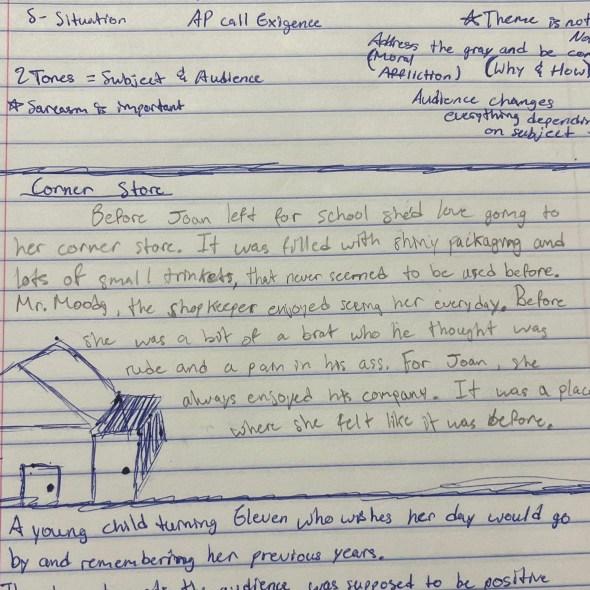 S- Situation AP call Exigence ☆Theme is not
Address the gray and be
(Moral Affliction) (Why & How)
2 Tones = Subject & Audience
☆ Sarcasm is important
Audience changes
everything
on subject
Corner Store
Before Joan left for school she'd love going to
her corner store. It was filled with shiny packaging and
lots of small trinkets, that never seemed to be used before.
Mr. Moody, the shopkeeper enjoyed seeing her everyday. Before
she was a bit of a brat who he thought was
rude and a pain in his ass. For Joan, she
always enjoyed his company. It was a
where she felt like it was before.
A young child turning Eleven who wishes her day would go
by and remembering her previous years.
the audience was supposed to be positive